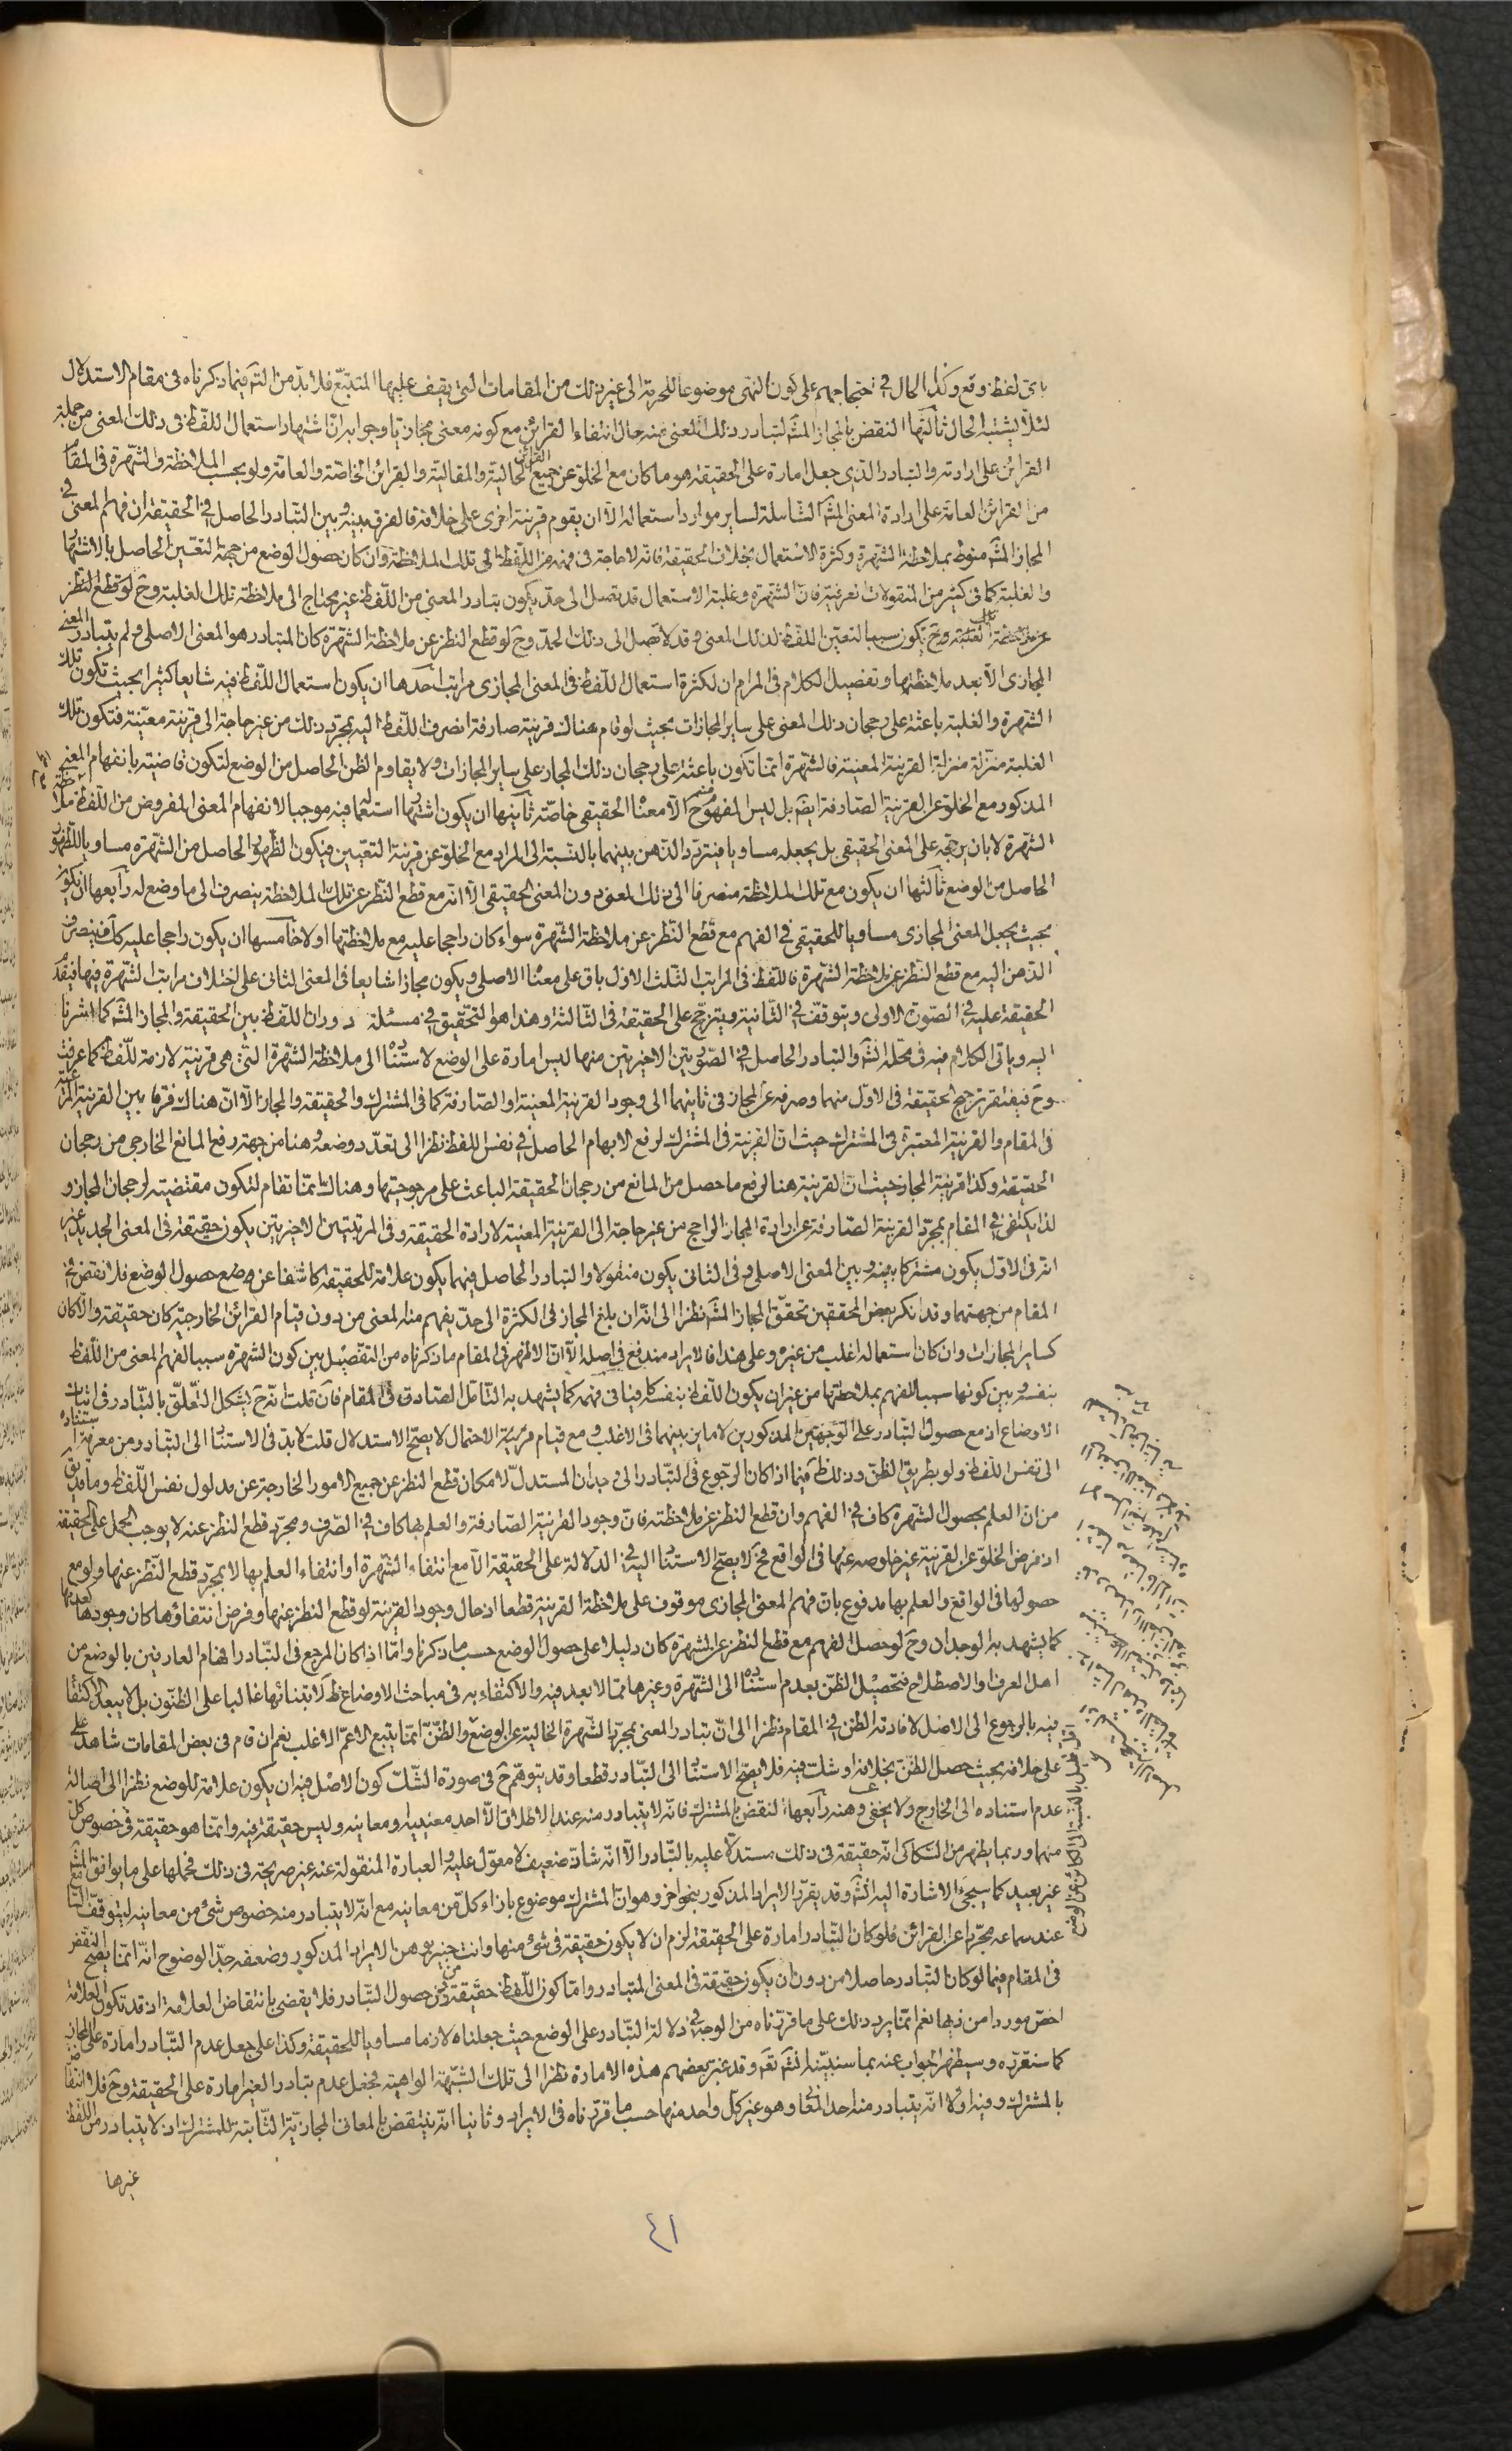 باى لفظ وقع وكذا الحال فى احتجاجهم على كون النهى موضوعا للحرمة الى غير ذلك من المقامات التى يقف عليها المتتبع فلا بد من التم فيما ذكرناه فى مقام الاستدلال
لئلا يشتبه الحال ثالثها النقض بالمجاز المشه لتبادر ذلك المعنى منه حال انتفاء القرائن مع كونه معنى مجازيا وجوابه ان اشتهار استعمال اللفظ فى ذلك المعنى من جملة
القرائن على ارادته والتبادر الذى جعل امارة على الحقيقة هو ما كان مع الخلو عن جميع القرائن الحالية والمقالية والقرائن الخاصة والعامة ولو بحسب الملاحظة والشهرة فى المقام
من القرائن العامة على ارادة المعنى المشه الشاملة لساير موارد استعماله الا ان يقوم قرينة اخرى على خلافه فالفرق بينه وبين التبادر الحاصل فى الحقيقة ان فهم المعنى فى
المجاز المشه منوط بملاحظة الشهرة وكثرة الاستعمال بخلاف الحقيقة فانه لا حاجة فى فهمه من اللفظ الى تلك الملاحظة وان كان حصول الوضع من جهة التعين الحاصل بالاشتهار
والغلبة كما فى كثير من المنقولات العرفية فان الشهرة وغلبة الاستعمال قد تصل الى حد يكون تبادر المعنى من اللفظ غير محتاج الى ملاحظة تلك الغلبة وح لو قطع النظر
عن ملاحظة تلك الغلبة وح يكون سببا لتعين اللفظ لذلك المعنى وقد لا تصل الى ذلك الحد وح لو قطع النظر عن ملاحظة الشهرة كان المتبادر هو المعنى الاصلى ولم يتبادر المعنى
المجازى الا بعد ملاحظتها وتفصيل الكلام فى المرام ان لكثرة استعمال اللفظ فى المعنى المجازى مراتب احدها ان يكون استعمال اللفظ فيه شايعا كثيرا بحيث تكون تلك
الشهرة والغلبة باعثة على رجحان ذلك المعنى على ساير المجازات بحيث لو قام هناك قرينة صارفة انصرف اللفظ اليه بمجرد ذلك من غير حاجة الى قرينة معينة فتكون تلك
الغلبة منزلة منزلة القرينة المعينة فالشهرة انما تكون باعثة على رجحان ذلك المجاز على ساير المجازات ولا يقاوم الظن الحاصل من الوضع لتكون قاضية بانفهام المعنى
المذكور مع الخلو عن القرينة الصارفة ايضم بل ليس المفهوم منه ح الا معناه الحقيقى خاصة ثانيها ان يكون اشتهار استعماله فيه موجبا لانفهام المعنى المفروض من اللفظ ملاحظة
الشهرة لا بان يرجحه على المعنى الحقيقى بل يجعله مساويا فيتردد الذهن بينهما بالنسبة الى المراد مع الخلو عن قرينة التعيين فيكون الظهور الحاصل من الشهرة مساويا للظهور
الحاصل من الوضع ثالثها ان يكون مع تلك الملاحظة منصرفا الى ذلك المعنى دون المعنى الحقيقى الا انه مع قطع النظر عن تلك الملاحظة ينصرف الى ما وضع له رابعها ان يكون
بحيث يجعل المعنى المجازى مساويا للحقيقى فى الفهم مع قطع النظر عن ملاحظة الشهرة سواء كان راجحا عليه مع ملاحظتها اولا خامسها ان يكون راجحا عليه كك فينصرف
الذهن اليه مع قطع النظر عن ملاحظة الشهرة فاللفظ فى المراتب الثلث الاول باق على معناه الاصلى ويكون مجازا شايعا فى المعنى الثانى على اختلاف مراتب الشهرة فيها فيقدم
الحقيقة عليه فى الصورة الاولى ويتوقف فى الثانية ويترجح على الحقيقة فى الثالثة وهذا هو التحقيق فى مسئلة دوران اللفظ بين الحقيقة والمجاز المشه كما اشرنا
اليه وياتى الكلام فيه فى محله انشه والتبادر الحاصل فى الصورتين الاخيرتين منها ليس امارة على الوضع لاستناده الى ملاحظة الشهرة التى هى قرينة لازمة للفظ كما عرفت
وح فيفتقر ترجيح الحقيقة فى الاول منهما وصرفه عن المجاز فى ثانيهما الى وجود القرينة المعينة او الصارفة كما فى المشترك والحقيقة والمجاز الا ان هناك فرقا بين القرينة
فى المقام والقرينة المعتبرة فى المشترك حيث ان القرينة فى المشترك لرفع الابهام الحاصل فى نفس اللفظ نظرا الى تعدد وضعه وهنا من جهة رفع المانع الخارجى من رجحان
الحقيقة وكذا قرينة المجاز حيث ان القرينة هنا لرفع ما حصل من المانع من رجحان الحقيقة الباعث على مرجوحيتها وهناك انما تقام لتكون مقتضية لرجحان المجاز و
لذا يكتفى فى المقام بمجرد القرينة الصارفة عن ارادة المجاز الراجح من غير حاجة الى القرينة المعينة لارادة الحقيقة وفى المرتبتين الاخيرتين يكون حقيقة فى المعنى الجديد غير
انه فى الاول يكون مشتركا بينه وبين المعنى الاصلى وفى الثانى يكون منقولا والتبادر الحاصل فيهما يكون علامة للحقيقة كاشفا عن وضع حصول الوضع فلا نقض فى
المقام من جهتهما وقد انكر بعض المحققين تحقق المجاز المشه نظرا الى انه ان بلغ المجاز فى الكثرة الى حد يفهم منه المعنى من دون قيام القرائن الخارجية كان حقيقة والا كان
كساير المجازات وان كان استعماله اغلب من غيره وعلى هذا فالايراد مندفع فى اصله الا ان الاظهر فى المقام ما ذكرناه من التفصيل بين كون الشهرة سببا لفهم المعنى من اللفظ
بنفسه وبين كونها سببا للفهم بملاحظتها من غير ان يكون اللفظ بنفسه كافيا فى فهمه كما يشهد به التامل الصادق فى المقام فان قلت انه ح يشكل التعلق بالتبادر فى اثبات
الاوضاع اذ مع حصول التبادر على الوجهين المذكورين لا ماين بينهما فى الاغلب ومع قيام الاحتمال لا يصح الاستدلال قلت لا بد فى الاستناد الى التبادر من معرفة استناده
الى نفس اللفظ ولو بطريق الظن وذلك ظ فيما اذا كان الرجوع فى التبادر الى وجدان المستدل لامكان قطع النظر عن جميع الامور الخارجة عن مدلول نفس اللفظ وما قد يق
من ان العلم بحصول الشهرة كاف فى الفهم وان قطع النظر عن ملاحظته فان وجود القرينة الصارفة والعلم بها كاف فى الصرف ومجرد قطع النظر عنه لا يوجب الحمل على الحقيقة
اذ فرض الخلو عن القرينة غير خلوصه عنها فى الواقع فح لا يصح الاستناد اليه فى الدلالة على الحقيقة الا مع انتفاء الشهرة او انتفاء العلم بها لا بمجرد قطع النظر عنها ولو مع
حصولها فى الواقع والعلم بها مدفوع بان فهم المعنى المجازى موقوف على ملاحظة القرينة قطعا اذ حال وجود القرينة لو قطع النظر عنها وفرض انتفاؤها كان وجودها كعدمها
كما يشهد به الوجدان وح لو حصل الفهم مع قطع النظر عن الشهرة كان دليلا على حصول الوضع حسب ما ذكرنا واما اذا كان المرجع فى التبادر افهام العارفين بالوضع من
اهل العرف والاصطلاح فتحصيل الظن بعدم استناده الى الشهرة وغيرها مما لا بعد فيه والاكتفاء به فى مباحث الاوضاع ظ لابتنائها غالبا على الظنون بل لا يبعد الاكتفاء
فيه بالرجوع الى الاصل لافادته الظن فى المقام نظرا الى ان تبادر المعنى بمجرد الشهرة الخالية عن الوضع والظن انما يتبع الاعم الاغلب نعم ان قام فى بعض المقامات شاهد على
على خلافه بحيث حصل الظن بخلافه او شك فيه فلا يصح الاستناد الى التبادر قطعا وقد يتوهم ح فى صورة الشك كون الاصل فيه ان يكون علامة للوضع نظرا الى اصالة
عدم استناده الى الخارج ولا يخفى وهنه رابعها النقض بالمشترك فانه لا يتبادر منه عند الاطلاق الا احد معنييه او معانيه وليس حقيقة فيه وانما هو حقيقة فى خصوص كل
منهما وربما يظهر من السكاكى انه حقيقة فى ذلك مستدلا عليه بالتبادر الا انه شاذ ضعيف لا معول عليه والعبارة المنقولة عنه غير صريحة فى ذلك فحملها على ما يوافق المشه
غير بعيد كما سيجئ الاشارة اليه انشه وقد يقرر الايراد المذكور بنحو اخر وهو ان المشترك موضوع بازاء كل من معانيه مع انه لا يتبادر منه خصوص شئ من معانيه ليتوقف
عند سماعه مجردا عن القرائن فلو كان التبادر امارة على الحقيقة لزم ان لا يكون حقيقة فى شئ منها وانت خبير بوهن الايراد المذكور وضعفه جد الوضوح انه انما يصح النقض
فى المقام فيما لو كان التبادر حاصلا من دون ان يكون حقيقة فى المعنى المتبادر واما كون اللفظ حقيقة من دون حصول التبادر فلا يقضى بانتقاض العلامة اذ قد تكون العلامة
اخص موردا من ذيها نعم انما يرد ذلك على ما قررناه من الوجه فى دلالة التبادر على الوضع حيث جعلناه لازما مساويا للحقيقة وكذا على جعل عدم التبادر امارة على المجاز
كما سنقرره وسيظهر الجواب عنه بما سنبينه انشه تعه وقد غير بعضهم هذه الامارة نظرا الى تلك الشبهة الواهية فجعل عدم تبادر الغير امارة على الحقيقة وح فلا انتقاض
بالمشترك وفيه اولا انه يتبادر منه احد المعانى وهو غير كل واحد منها حسب ما قررناه فى الايراد وثانيا انه ينتقض بالمعانى المجازية الثابتة للمشترك اذ لا يتبادر من اللفظ
غيرها
٤١